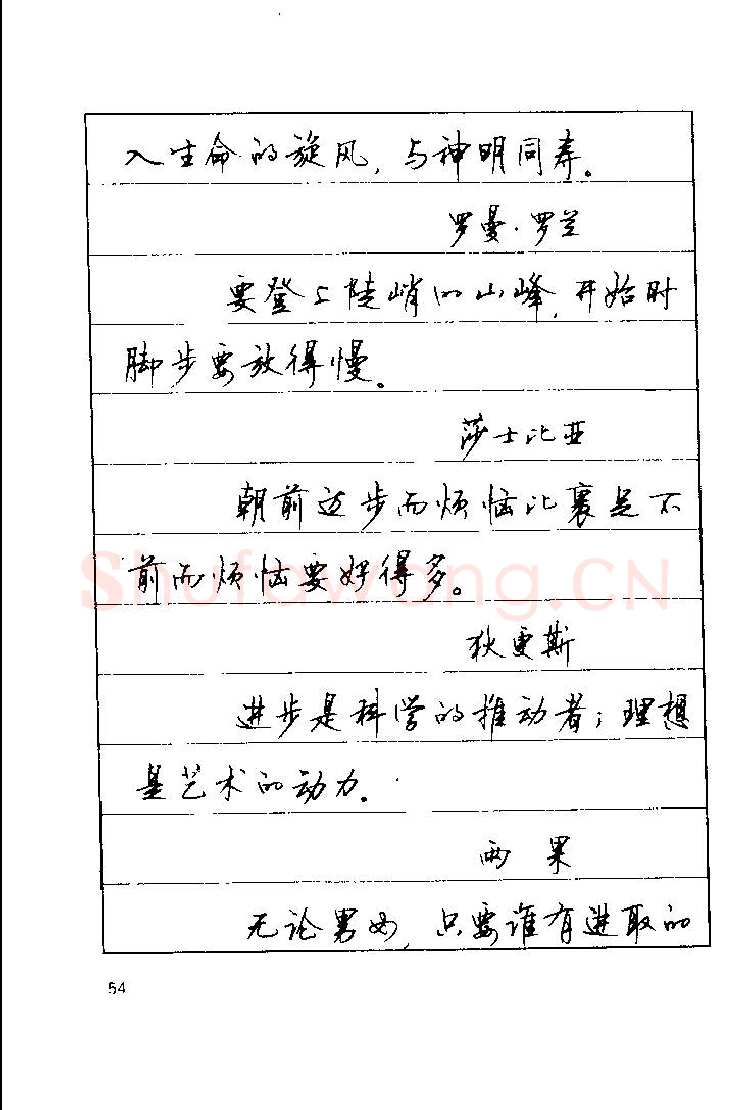 入生命的旋风,与神明同寿。
罗曼·罗兰
要登上陡峭的山峰,开始时
脚步要放得慢。
莎士比亚
朝前迈步而烦恼比裹足不
前而烦恼要好得多。
Shufawang.CN
狄更斯
进步是科学的推动者;理想
是艺术的动力。
雨果
无论男女,只要谁有进取的
54